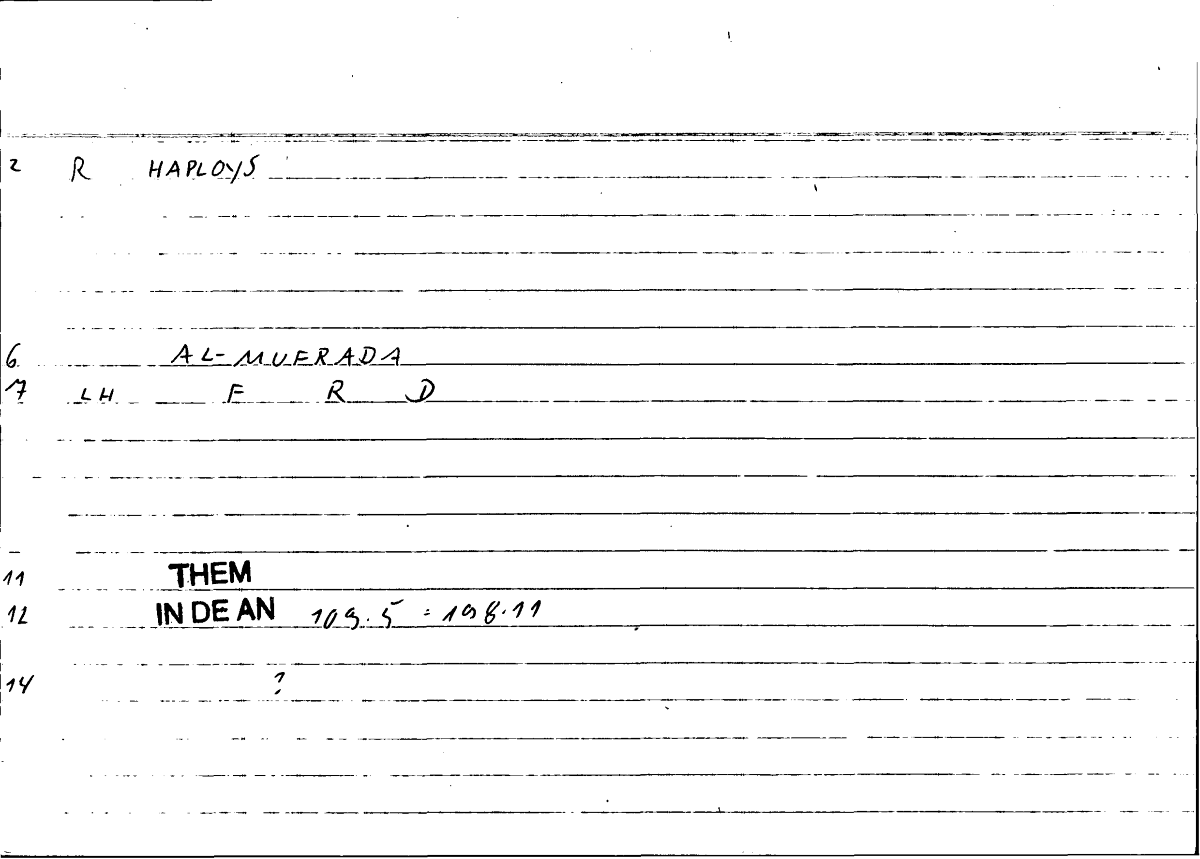 2 R HAPLOYS
6 AL-MUFRADA
7 LH F R D
11 THEM
12 IN DE AN 109.5 = 198.11
14 ?